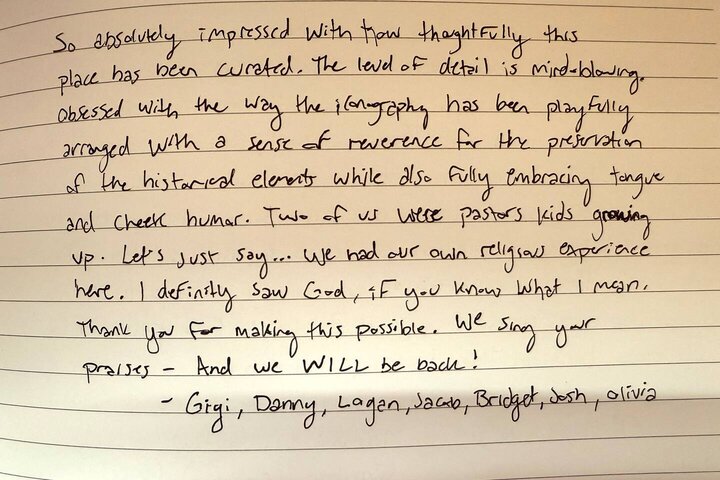 So absolutely impressed with how thoughtfully this
place has been curated. The level of detail is mind-blowing.
Obsessed with the way the iconography has been playfully
arranged with a sense of reverence for the preservation
of the historical elements while also fully embracing tongue
and cheek humor. Two of us were pastors kids growing
up. Let's just say... we had our own religious experience
here. I definitly saw God, if you know what I mean.
Thank you for making this possible. We sing your
praises - And we WILL be back!
- Gigi, Danny, Logan, Jacob, Bridget, Josh, Olivia